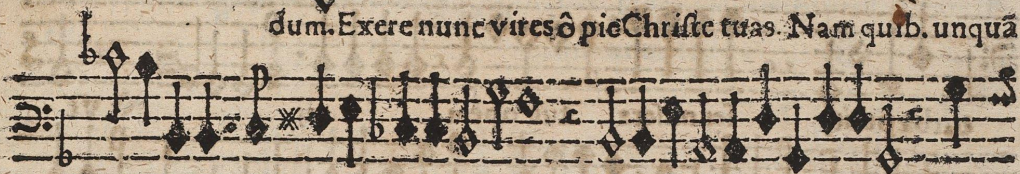 dum. Exere nunc vires ô pie Chriſte tuas. Nam quib. unquã